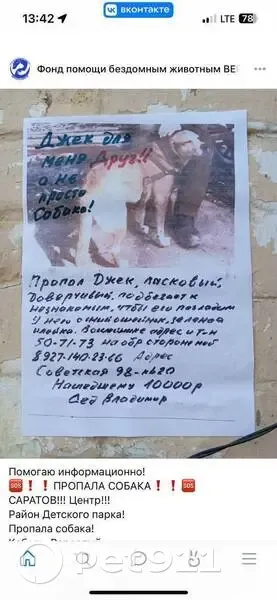 13:42
вконтакте
LTE 78
Фонд помощи бездомным животным ВЕ
Джек для
меня Друг!!
а не
просто
Собака!
Пропал Джек, ласковый,
Доверчивый, подбегает к
незнакомым, чтбы его погладили
У него ошейник, зеленая
адрес и т-н
50-71-73 на обр стороне
8927-140-23-66 Адрес
Советская 98-кв20
Нашедшему 10000р
Сед Владимир
Помогаю информационно!
🆘❗❗ПРОПАЛА СОБАКА❗❗🆘
САРАТОВ!!! Центр!!!
Район Детского парка!
Пропала собака!
pet911